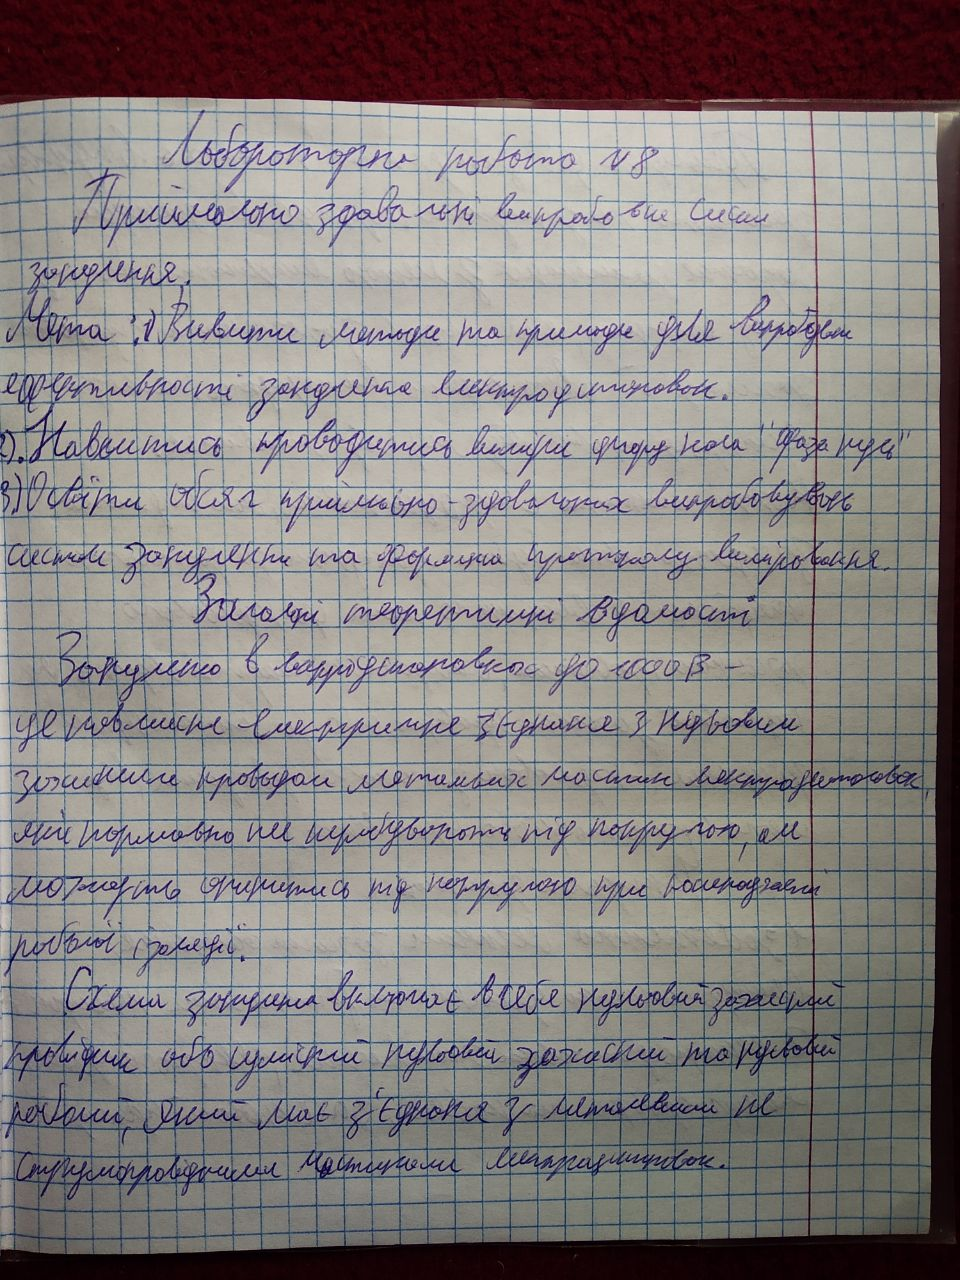 Лабораторна робота №8
Приймально здавальні випробовне систем
занулення.
Мета: 1) Вивчити методи та прилади для випробувань
ефективності занулення електроустановок.
2). Навчитись проводитись виміри опору кола "фаза нуль"
3) Освоїти обсяг приймально-здавальних випробовувань
систем занулення та форми протоколу вимірювання.
Загальні теоретичні відомості
Занулено в електроустановках до 1000 В –
це навмисне електричне з'єднання з нульовим
захисним проводом металевих частин електроустановок,
які нормально не перебувають під напругою, але
можуть опинитись під напругою при пошкоджені
робочої ізоляції.
Схема занулена включає в себе нульовий захисний
провідник або суміщий нульовий захисний та нулевий
робочий, який має з'єднаня з металевими не
струмопровідними частинами електроустановок.